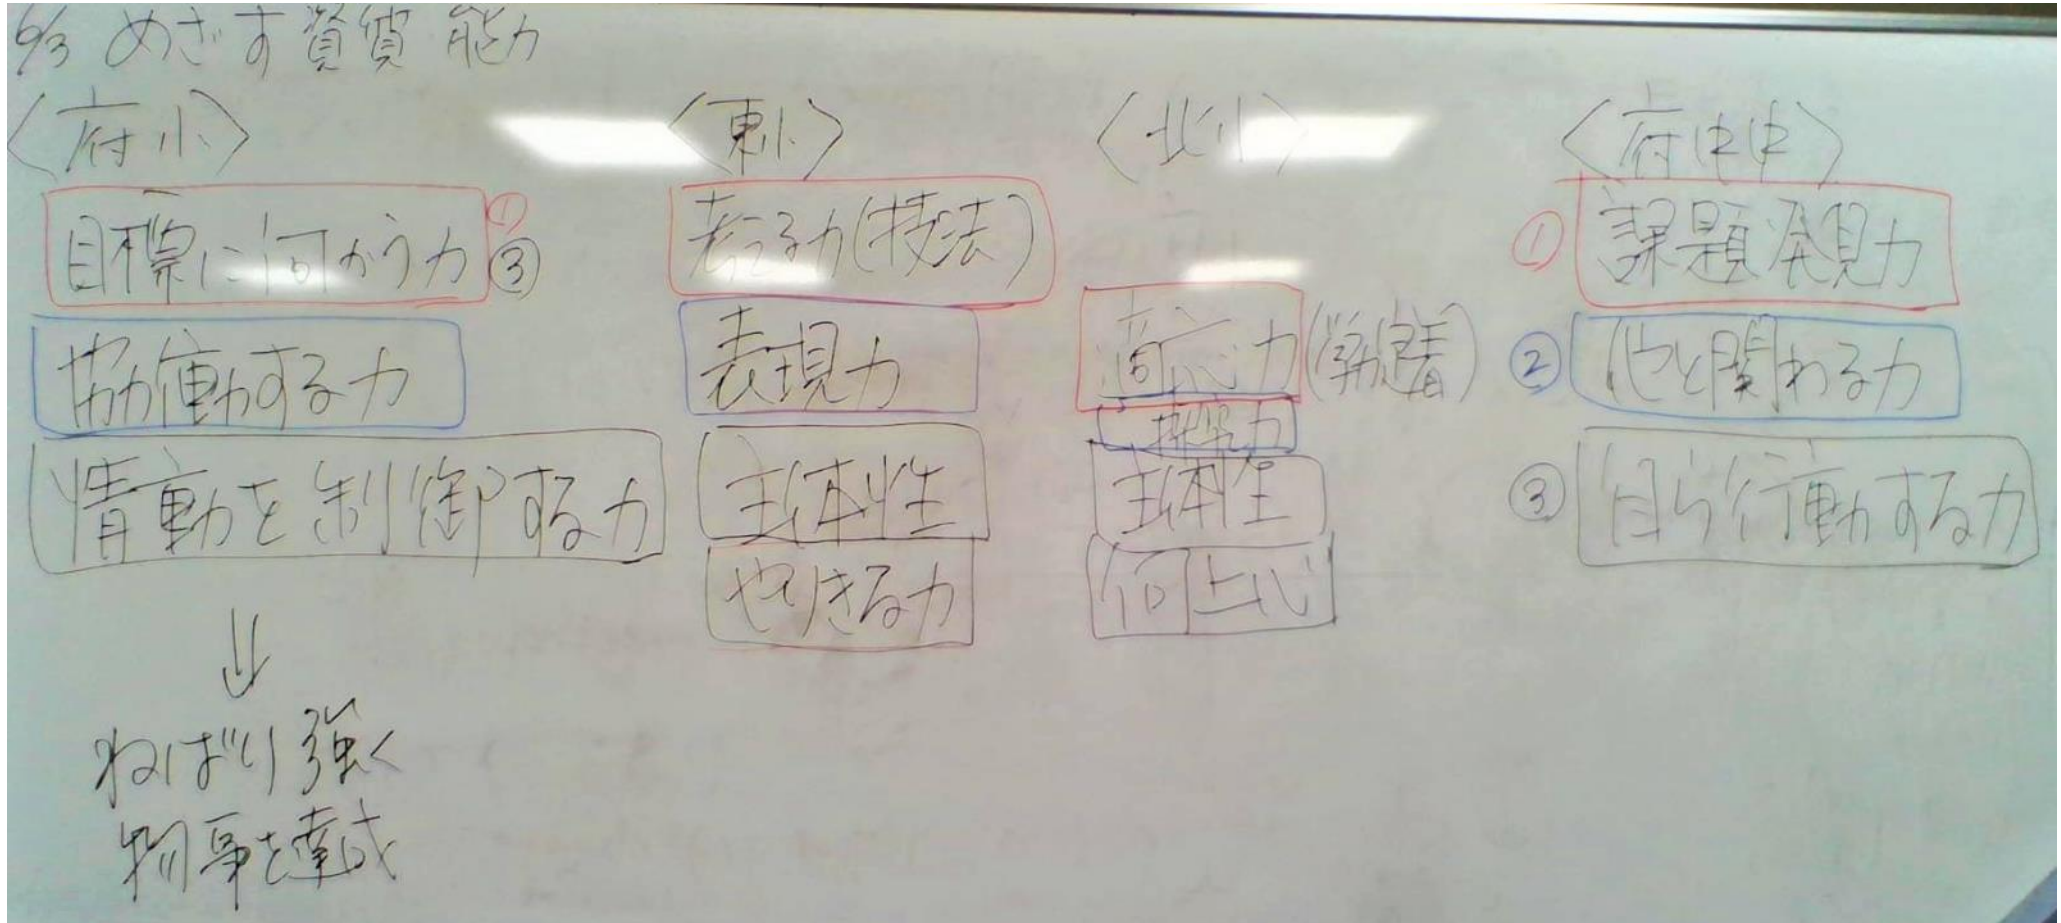 6/3 めざす資質 能力
〈府小〉
目標に向かう力 ① ③
協働する力
情動を制御する力
⇓
ねばり強く
物事を達成
〈東小〉
考える力(技法)
表現力
主体性
やりきる力
〈北小〉
適応力(学力定着)
力
主体性
向上心
〈府中中〉
① 課題発見力
② 他と関わる力
③ 自ら行動する力